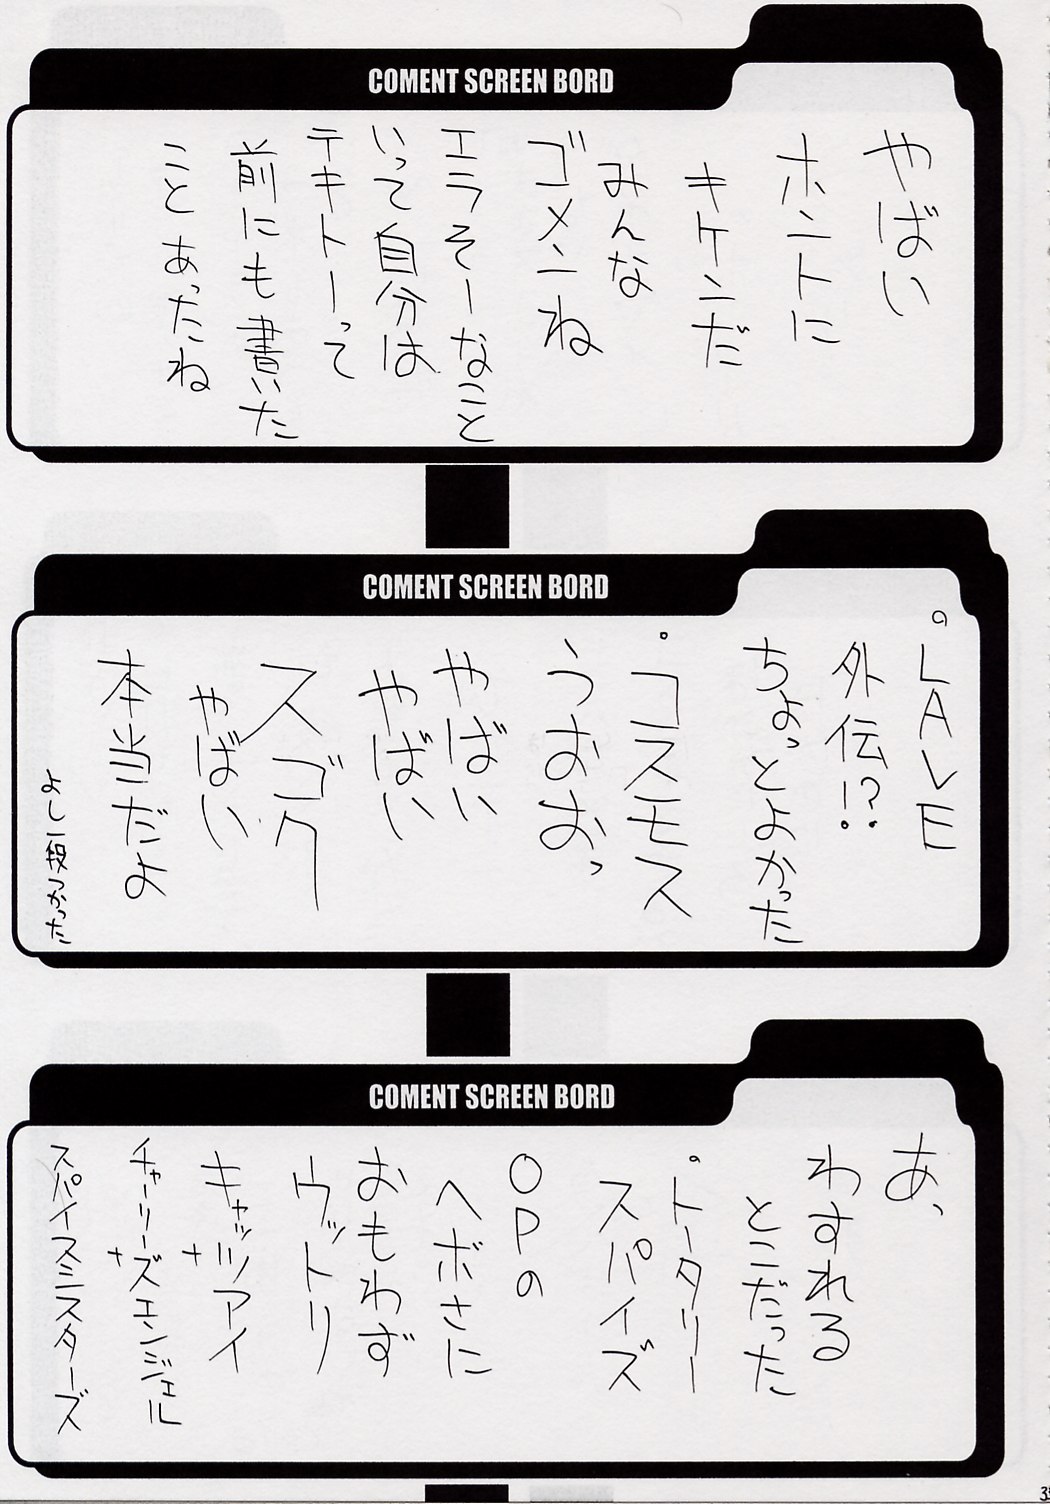 COMENT SCREEN BORD
やばい
ホントに
キケンだ
みんな
ゴメンね
エラそーなこと
いって自分は
テキトーって
前にも書いた
ことあったね
COMENT SCREEN BORD
。LAVE
外伝!?
ちょっとよかった
。コスモス
うおおっ
やばい
やばい
スゴク
やばい
本当だよ
よし一段つかった
COMENT SCREEN BORD
あ、
わすれる
とこだった
。トータリー
スパイズ
OPの
ヘボさに
おもわず
ウットリ
キャッツアイ
+
チャーリーズエンジェル
+
スパイスシスターズ